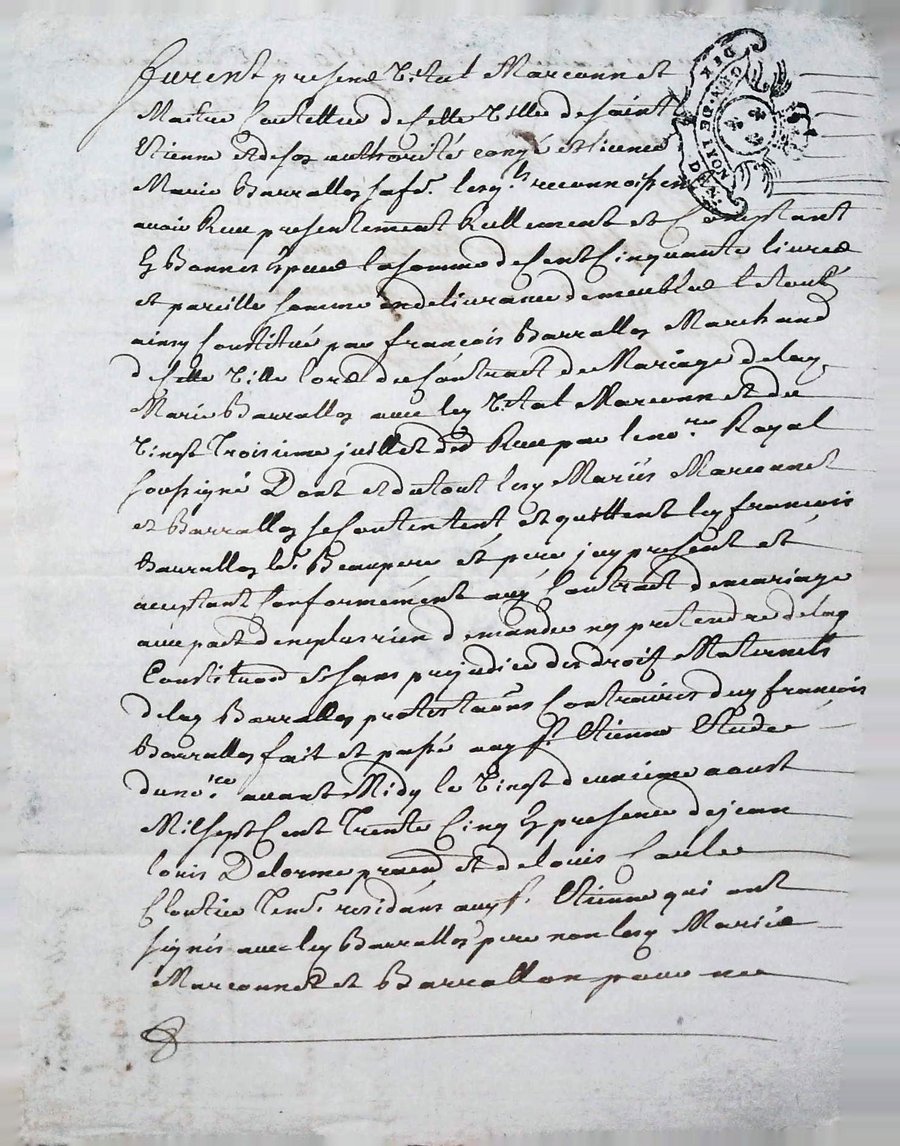 furent presens Vital Marconnet
Maitre Coutellier de cette Ville de Saint
Etienne et de son authorité congé et licence
Marie Barrallon sa fe. lesqls. reconnoissent
avoir Reçu presentement Reellement et Comptant
En Bonnes Espaces la somme de Cent Cinquante livres
et pareille somme en delivrance de meubles le tout
ainsy Constitué par francois Barrallon Marchand
de cette Ville lors du Contract de Mariage de lad.
Marie Barrallon avec led Vital Marconnet du
Vingt Troisieme juillet dr Reçu par le nore. Royal
soussigné Dont et du tout lesd Mariés Marconnet
et Barrallon se Contentent et quittent led francois
Barrallon lr. Beaupere et pere icy present et
acceptant Conformément aud Contract de mariage
avec pact d'en plus rien demander ny pretendre de lad
Constituon. Et sans prejudice des droits Maternels
de lad Barrallon protestaons Contraires dud francois
Barrallon fait et passé aud St. Etienne Etude
du nore. avant Midy le Vingt deuxième aoust
Mil sept Cent Trente Cinq En presence de jean
louis Delorme pratn et de louis Carles
Cloutier Tems. residans aud St. Etienne qui ont
signés avec led Barrallon pere non lesd Mariés
Marconnet et Barrallon pour ne
GEN. DE LYON